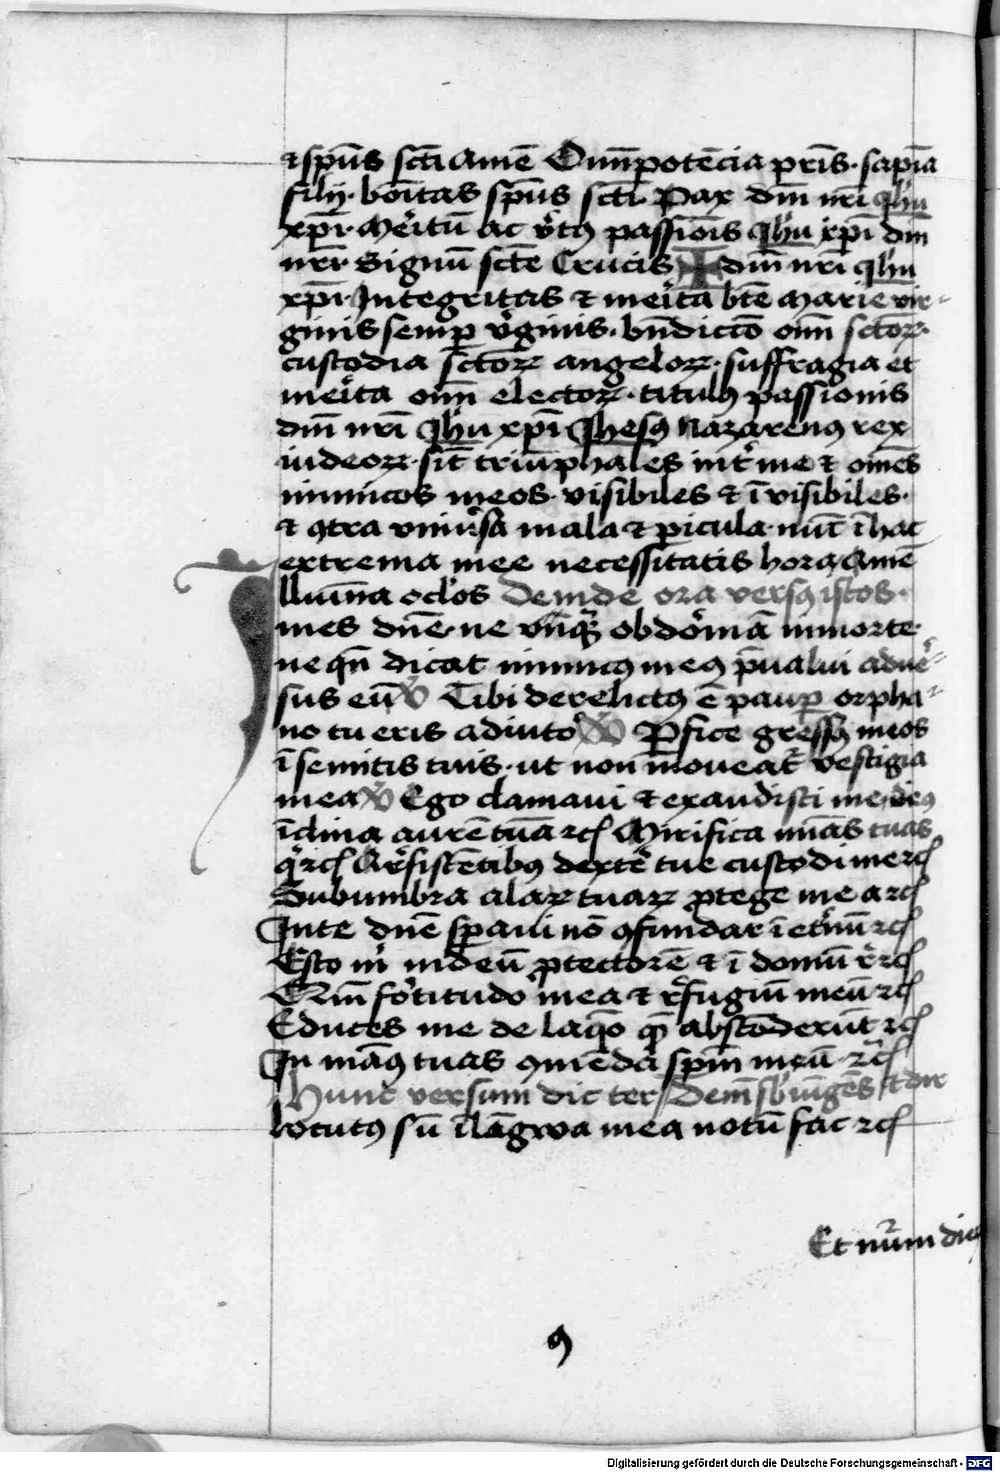 ⁊ spūs sct̄i Amē Om̄ipotēcia pr̄is · sapīa
filij · bōitas spūs sct̄i · Pax dn̄i nr̄i Jhū
xp̄i · Mēitū ac v̄tꝯ passiōis Jhū xp̄i dn̄i
nr̄i · Signū sct̄e Crucis ✠ dn̄i nr̄i Jhū
xp̄i · Integritas ⁊ mēita bt̄e Marie vir-
ginis semꝑ v̄ginis · bn̄dictō oīm sctōꝝ ·
custodia sctōꝝ angeloꝝ · suffragia et
mēita oīm electoꝝ · titulꝯ passionis
dn̄i nr̄i Jhū xp̄i Jhesꝯ Nazarenꝯ rex
iudeoꝝ · sīt triūphales int̄ me ⁊ om̄es
inimicos meos · visibiles ⁊ īvisibiles ·
⁊ ꝯtra vniūsa mala ⁊ picula · nūc ī hac
extrema mee necessitatis hora Amē
Illuīna oclōs Deinde ora versꝯ istos ·
meos dn̄e · ne vn̄qꝫ obdōmiā in morte ·
ne qn̄ dicat inimicꝯ meꝯ p̄ualui aduē-
sus eū ℣ Tibi derelictꝯ ē pauꝑ orpha-
no tu eris adiutōr ℣ ꝑfice gressꝯ meos
ī semitis tuis · ut non moueāt vestigia
mea ℣ Ego clamaui ⁊ exaudisti me deꝯ
īclina aurē tuā ⁊c̄ Mirifica mīas tuas
q̄ ⁊c̄ A r̄sistētibꝯ dextē tue custodi me ⁊c̄
Sub umbra alaꝝ tuaꝝ ꝓtege me a ⁊c̄
In te dn̄e spaui nō ꝯfundar ī etn̄ū ⁊c̄
Esto m̄ in deū ꝓtectorē ⁊ ī domū r̄ ⁊c̄
Qm̄ fōtitudo mea ⁊ r̄fugiū meū ⁊c̄
Educes me de laq̄o qē abscōderūt ⁊c̄
In māꝯ tuas ꝯmēdā spm̄ meū ⁊c̄
Hunc versum dic ter
locutꝯ sū ī līgwa mea notū fac ⁊c̄
Et nūm die
9
Digitalisierung gefördert durch die Deutsche Forschungsgemeinschaft - DFG